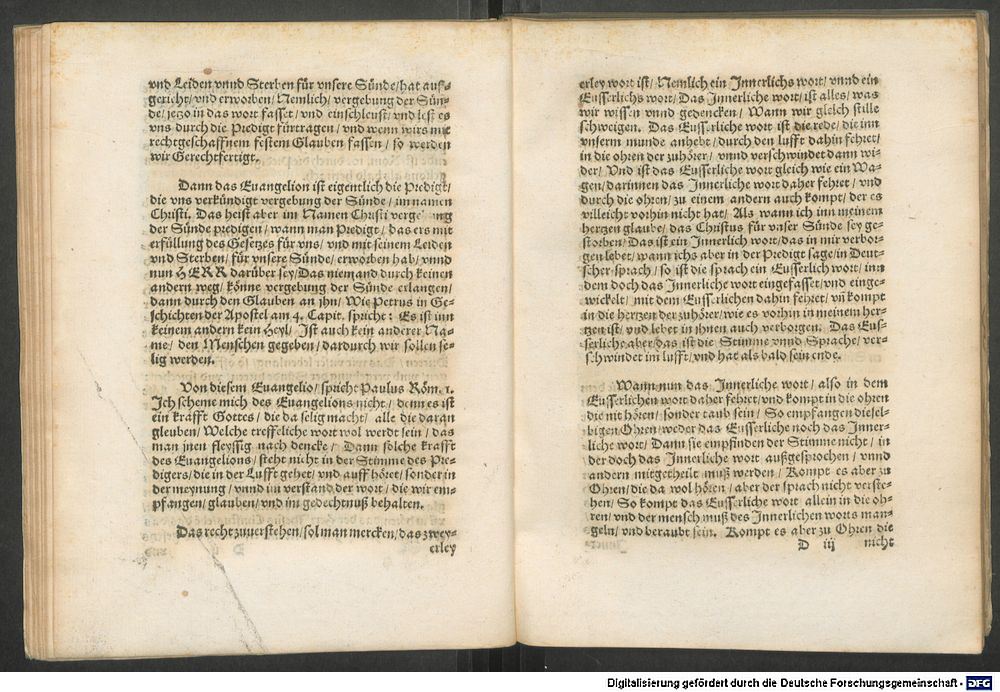 vnd Leiden vnnd Sterben für vnsere Sünde/hat auff-
gericht/vnd erworben/Nemlich/vergebung der Sün-
de/jetzo in das wort fasset/vnd einschleust/vnd lest es
vns durch die Predigt fürtragen/vnd wenn wirs mit
rechtgeschaffnem festem Glauben fassen/so werden
wir Gerechtfertigt.
Dann das Euangelion ist eigentlich die Predigt/
die vns verkündigt vergebung der Sünde/im namen
Christi. Das heist aber im Namen Christi
der Sünde predigen/wann man Predigt/das ers mit
erfüllung des Gesetzes für vns/vnd mit seinem Leiden
vnd Sterben/für vnsere Sünde/erworben hab/vnnd
nun HERR darüber sey/Das niemand durch keinen
andern weg/könne vergebung der Sünde erlangen/
dann durch den Glauben an jhn/Wie Petrus in Ge-
schichten der Apostel am 4. Capit. spricht: Es ist inn
keinem andern kein Heyl/Ist auch kein anderer Na-
me/den Menschen gegeben/dardurch wir sollen se-
lig werden.
Von diesem Euangelio/spricht Paulus Röm. 1.
Ich scheme mich des Euangelions nicht/denn es ist
ein krafft Gottes/die da selig macht/alle die daran
gleuben/Welche treffeliche wort wol werdt sein/das
man jnen fleyssig nach dencke/Dann solche krafft
des Euangelions/steht nicht in der Stimme des Pre-
digers/die in der Lufft gehet/vnd auff höret/sonder in
der meynung/vnnd im verstand der wort/die wir em-
pfangen/glauben/vnd im gedechtnuß behalten.
Das recht zuuerstehen/sol man mercken/das zwey-
erley
erley wort ist/Nemlich ein Innerlichs wort/vnnd ein
Eusserlichs wort/Das Innerliche wort/ist alles/was
wir wissen vnnd gedencken/Wann wir gleich stille
schweigen. Das Eusserliche wort ist die rede/die inn
vnserm munde anhebt/durch den lufft dahin fehret/
in die ohren der zuhörer/vnnd verschwindet dann wi-
der/Vnd ist das Eusserliche wort gleich wie ein Wa-
gen/darinnen das Innerliche wort daher fehret/vnd
durch die ohren/zu einem andern auch kompt/der es
villeicht vorhin nicht hat/Als wann ich inn meinem
hertzen glaube/das Christus für vnser Sünde sey ge-
storben/Das ist ein Innerlich wort/das in mir verbor-
gen lebet/wann ichs aber in der Predigt sage/in Deut-
scher sprach/so ist die sprach ein Eusserlich wort/inn
dem doch das Innerliche wort eingefasset/vnd einge-
wickelt/mit dem Eusserlichen dahin fehret/vñ kompt
in die hertzen der zuhörer/wie es vorhin in meinem her-
tzen ist/vnd lebet in jhnen auch verborgen. Das Eus-
serliche aber/das ist die Stimme vnnd Sprache/ver-
schwindet im lufft/vnd hat als bald sein ende.
Wann nun das Innerliche wort/also in dem
Eusserlichen wort daher fehret/vnd kompt in die ohren
die nit hören/sonder taub sein/So empfangen diesel-
bigen Ohren/weder das Eusserliche noch das Inner-
liche wort/Dann sie empfinden der Stimme nicht/in
der doch das Innerliche wort außgesprochen/vnnd
andern mitgetheilt muß werden/Kompt es aber zu
Ohren/die da wol hören/aber der sprach nicht verste-
hen/So kompt das Eusserliche wort allein in die oh-
ren/vnd der mensch muß des Innerlichen worts man-
geln/vnd beraubt sein. Kompt es aber zu Ohren die
D iij nicht
Digitalisierung gefördert durch die Deutsche Forschungsgemeinschaft - DFG